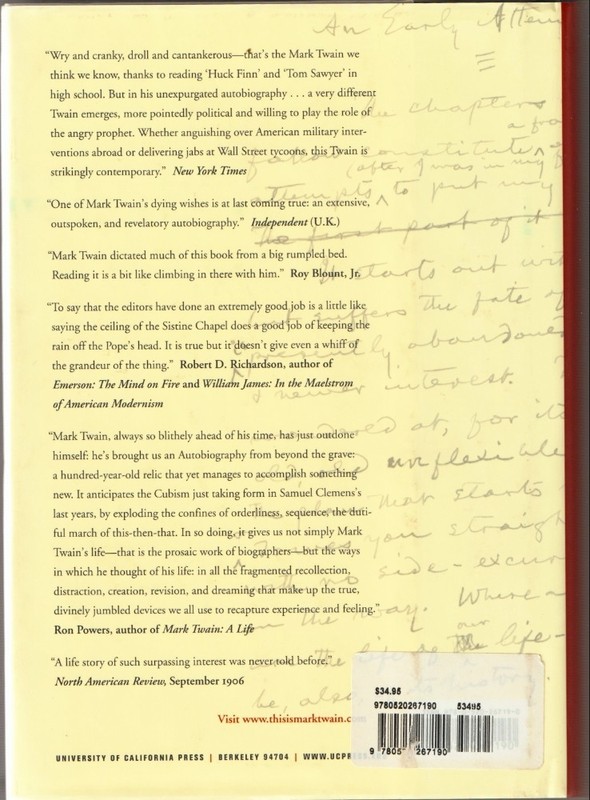 An Early Attem
"Wry and cranky, droll and cantankerous—that's the Mark Twain we
think we know, thanks to reading 'Huck Finn' and 'Tom Sawyer' in
high school. But in his unexpurgated autobiography . . . a very different
Twain emerges, more pointedly political and willing to play the role of
the angry prophet. Whether anguishing over American military inter-
ventions abroad or delivering jabs at Wall Street tycoons, this Twain is
strikingly contemporary." New York Times
"One of Mark Twain's dying wishes is at last coming true: an extensive,
outspoken, and revelatory autobiography." Independent (U.K.)
"Mark Twain dictated much of this book from a big rumpled bed.
Reading it is a bit like climbing in there with him." Roy Blount, Jr.
"To say that the editors have done an extremely good job is a little like
saying the ceiling of the Sistine Chapel does a good job of keeping the
rain off the Pope's head. It is true but it doesn't give even a whiff of
the grandeur of the thing." Robert D. Richardson, author of
Emerson: The Mind on Fire and William James: In the Maelstrom
of American Modernism
"Mark Twain, always so blithely ahead of his time, has just outdone
himself: he's brought us an Autobiography from beyond the grave:
a hundred-year-old relic that yet manages to accomplish something
new. It anticipates the Cubism just taking form in Samuel Clemens's
last years, by exploding the confines of orderliness, sequence, the duti-
ful march of this-then-that. In so doing, it gives us not simply Mark
Twain's life—that is the prosaic work of biographers—but the ways
in which he thought of his life: in all the fragmented recollection,
distraction, creation, revision, and dreaming that make up the true,
divinely jumbled devices we all use to recapture experience and feeling."
Ron Powers, author of Mark Twain: A Life
"A life story of such surpassing interest was never told before."
North American Review, September 1906
Visit www.thisismarktwain.c
UNIVERSITY OF CALIFORNIA PRESS | BERKELEY 94704 | WWW.UCPR
chapters
constitute
(after I was in my
attempts to put my
the first part of it
starts out wit
suffers the fate of
presently abandone
newer interest.
at, for its
inflexible
that starts
you straigh
no side-excur
the way. Where-
our
the life-
be, also history.
$34.95
9780520267190 53495
9 780520 267190